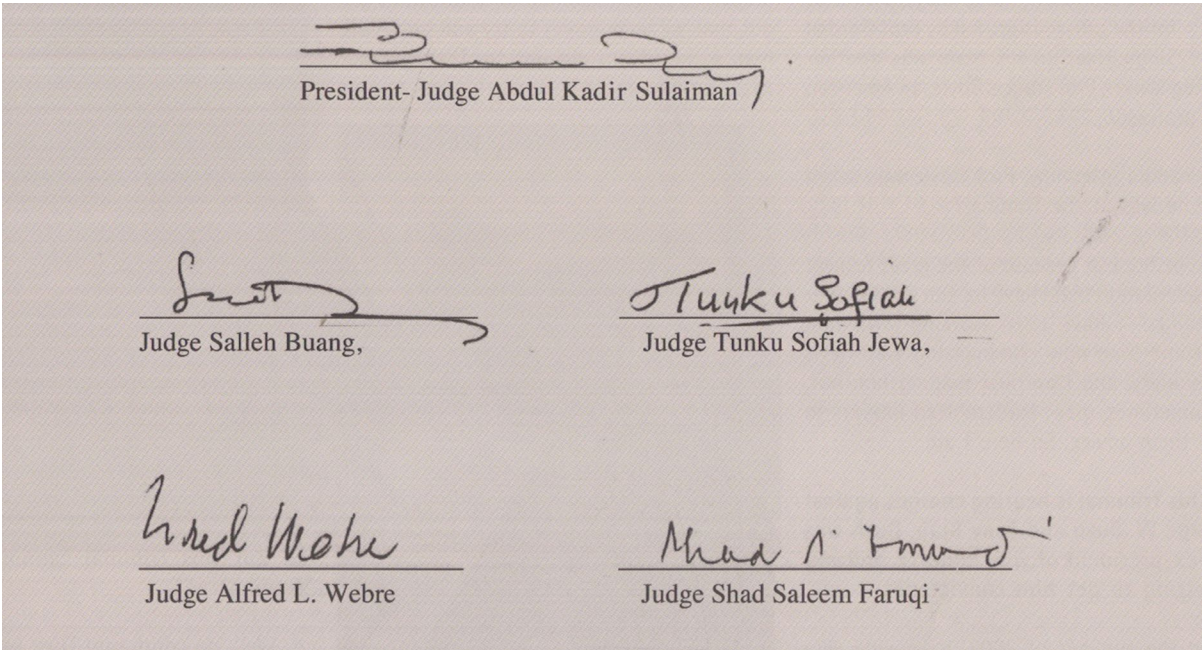 President- Judge Abdul Kadir Sulaiman
Tunku Sofiah
Judge Salleh Buang, Judge Tunku Sofiah Jewa,
Judge Alfred L. Webre Judge Shad Saleem Faruqi